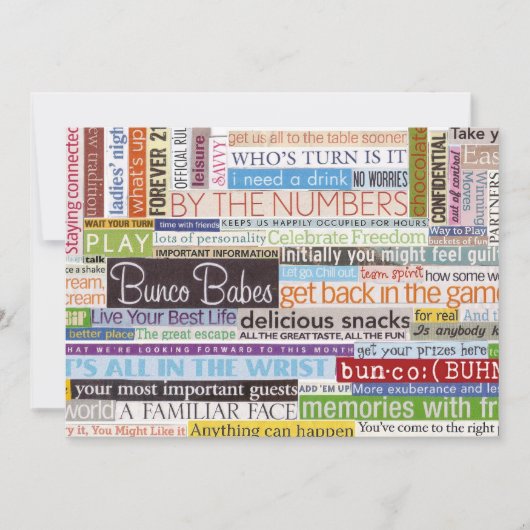 Staying connected
new tradition
ladies' nigh
what's up
FOREVER 21
OFFICIAL RUL
leisure
SAVVY
get us all to the table sooner
WHO'S TURN IS IT
i need a drink
NO WORRIES
chocolate
CONFIDENTIAL
Take y
out of control
Eas
Winning
Moves
PARTNERS
BY THE NUMBERS
WAIT YOUR TURN
time with friends
KEEPS US HAPPILY OCCUPIED FOR HOURS
Way to Play
buckets of fun
PLAY
lots of personality
Celebrate Freedom
talk
IMPORTANT INFORMATION
Initially you might feel guil
ce a shake
Let go. Chill out.
team spirit
how some wo
ream,
cream
Bunco Babes
get back in the game
Live Your Best Life
delicious snacks
for real
And th
better place
The great escape
ALL THE GREAT TASTE, ALL THE FUN
Is anybody k
HAT WE'RE LOOKING FORWARD TO THIS MONTH
get your prizes here
T'S ALL IN THE WRIST
bun·co: (BUHN
your most important guests
ADD 'EM UP
More exuberance and les
world
A FAMILIAR FACE
memories with fr
ry it, You Might Like it
Anything can happen
You've come to the right p